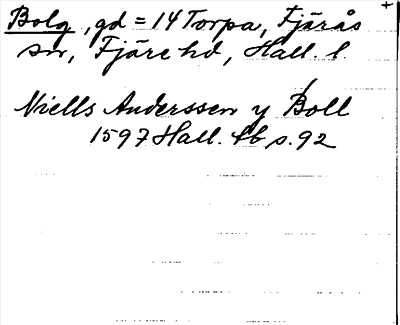 Bolg, gd = 14 Torpa, Fjärås
sn, Fjäre hd, Hall. l.
Niells Anderssen y Boll
1597 Hall. tb s. 92